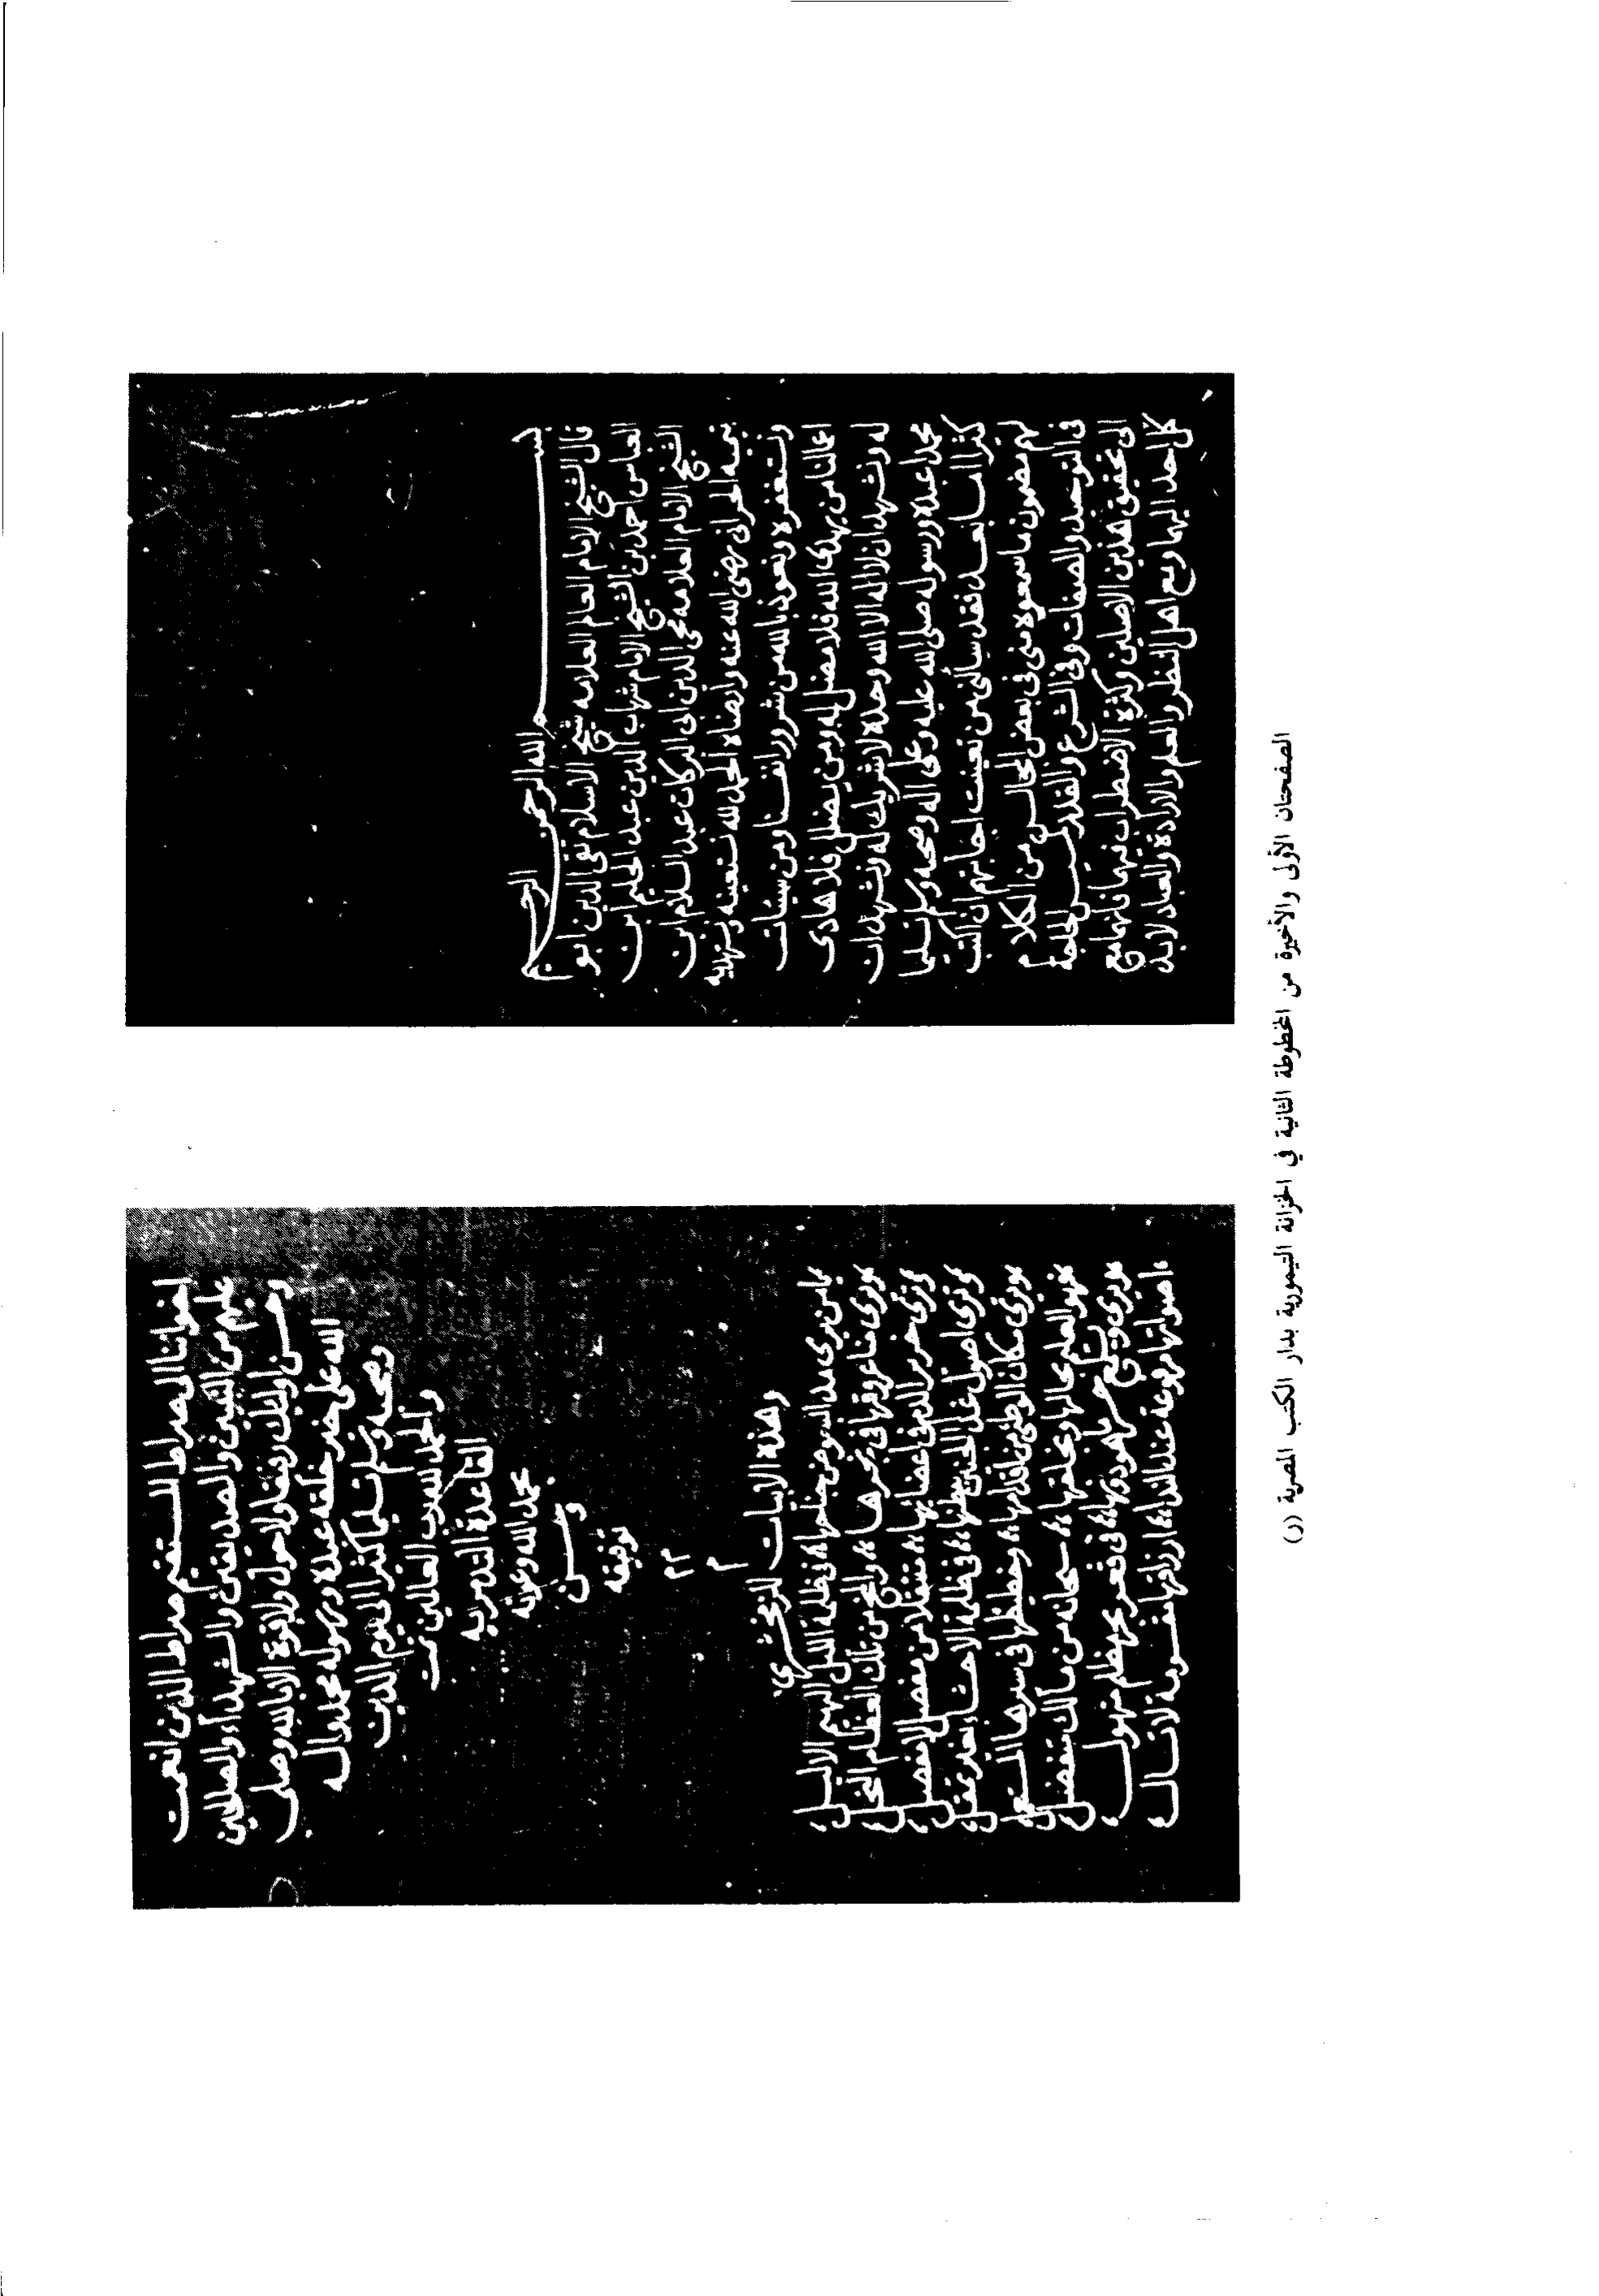 بسم الله الرحمن الرحيم
قال الشيخ الامام العالم العلامه شيخ الاسلام تقي الدين ابو
العباس احمد بن الشيخ الامام شهاب الدين عبد الحليم ابن
الشيخ الامام العلامه مجد الدين ابى البركات عبد السلام ابن
تيميه الحرانى رضى الله عنه وارضاه الحمد لله نستعينه ونستهديه
ونستغفره ونعوذ بالله من شرور انفسنا ومن سيئات
اعمالنا من يهدى الله فلا مضل له ومن يضلل فلا هادى
له ونشهد ان لا اله الا الله وحده لا شريك له ونشهد ان
محمدا عبده ورسوله صلى الله عليه وعلى اله وصحبه وسلم تسليما
كثيرا اما بعد فقد سألنى من تعينت اجابتهم ان اكتب
لهم مضمون ما سمعوه منى فى بعض المجالس من الكلام
فى التوحيد والصفات وفى الشرع والقدر لمسيس الحاجة
الى تحقيق هذين الاصلين وكثرة الاضطراب فيهما فانهما مع
كل احد اليهما ومع اهل النظر والعلم والارادة والعباد لابد
اخواننا الى صراط المستقيم صراط الذين انعمت
عليهم من النبيين والصديقين والشهداء والصالحين
وحسن اوليك رفيقا ولا حول ولا قوة الا بالله وصلى
الله على خير خلقه عبده ورسوله محمد واله
وصحبه وسلم تسليما كثيرا الى يوم الدين
والحمد لله رب العالمين تمت
القاعدة التدمريه
بحمد الله وعونه
وحسن
توفيقه
م م
م
وهذه الابيات للزمخشرى
يامن يرى مد البعوض جناحها فى ظلمة الليل البهيم الاليل
ويرى مناط عروقها فى نحرها والمخ من تلك العظام النحل
ويرى خرير الدم فى اعضائها متنقلا من مفصل لمفصل
ويرى اصول غذا الجنين ببطنها فى ظلمة الاحشا بغير تمقل
ويرى مكان الوطئ من اقدامها وخطيطها فى سيرها المستعجل
فهو العليم بحالها وبخلقها سبحانه من مالك متفضل
ويرى ويسمع ما هو دونها فى قعر بحر مظلم مهول
اصواتها مرفوعة عند الندا ارزاقها مقسومة لا تسال
الصفحتان الأولى والأخيرة من المخطوطة الثانية في الخزانة التيمورية بدار الكتب المصرية (ر)